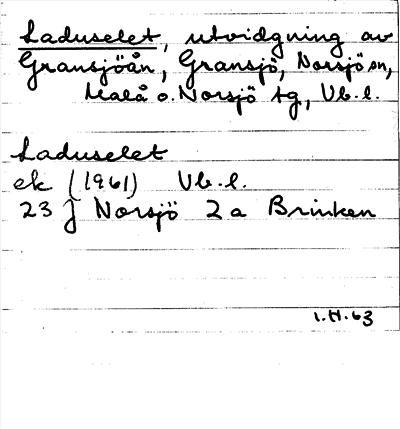 Laduselet, utvidgning av
Gransjöån, Gransjö, Norsjö sn,
Malå o. Norsjö tg, Vb. l.
Laduselet
ek (1961) Vb. l.
23 J Norsjö 2a Brinken
1.H.63